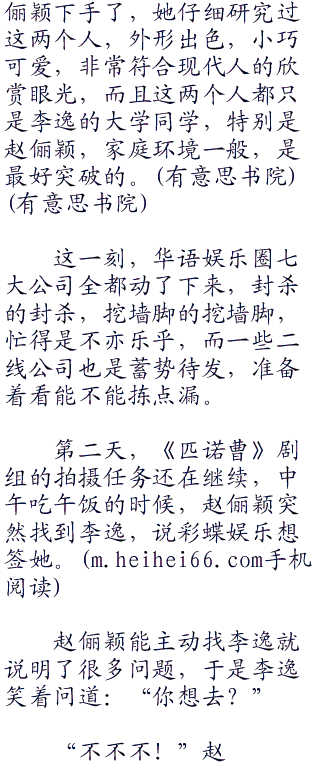 俪颖下手了，她仔细研究过
这两个人，外形出色，小巧
可爱，非常符合现代人的欣
赏眼光，而且这两个人都只
是李逸的大学同学，特别是
赵俪颖，家庭环境一般，是
最好突破的。(有意思书院)
(有意思书院)
这一刻，华语娱乐圈七
大公司全都动了下来，封杀
的封杀，挖墙脚的挖墙脚，
忙得是不亦乐乎，而一些二
线公司也是蓄势待发，准备
着看能不能拣点漏。
第二天，《匹诺曹》剧
组的拍摄任务还在继续，中
午吃午饭的时候，赵俪颖突
然找到李逸，说彩蝶娱乐想
签她。(m.heihei66.com手机
阅读)
赵俪颖能主动找李逸就
说明了很多问题，于是李逸
笑着问道：“你想去？”
“不不不！”赵